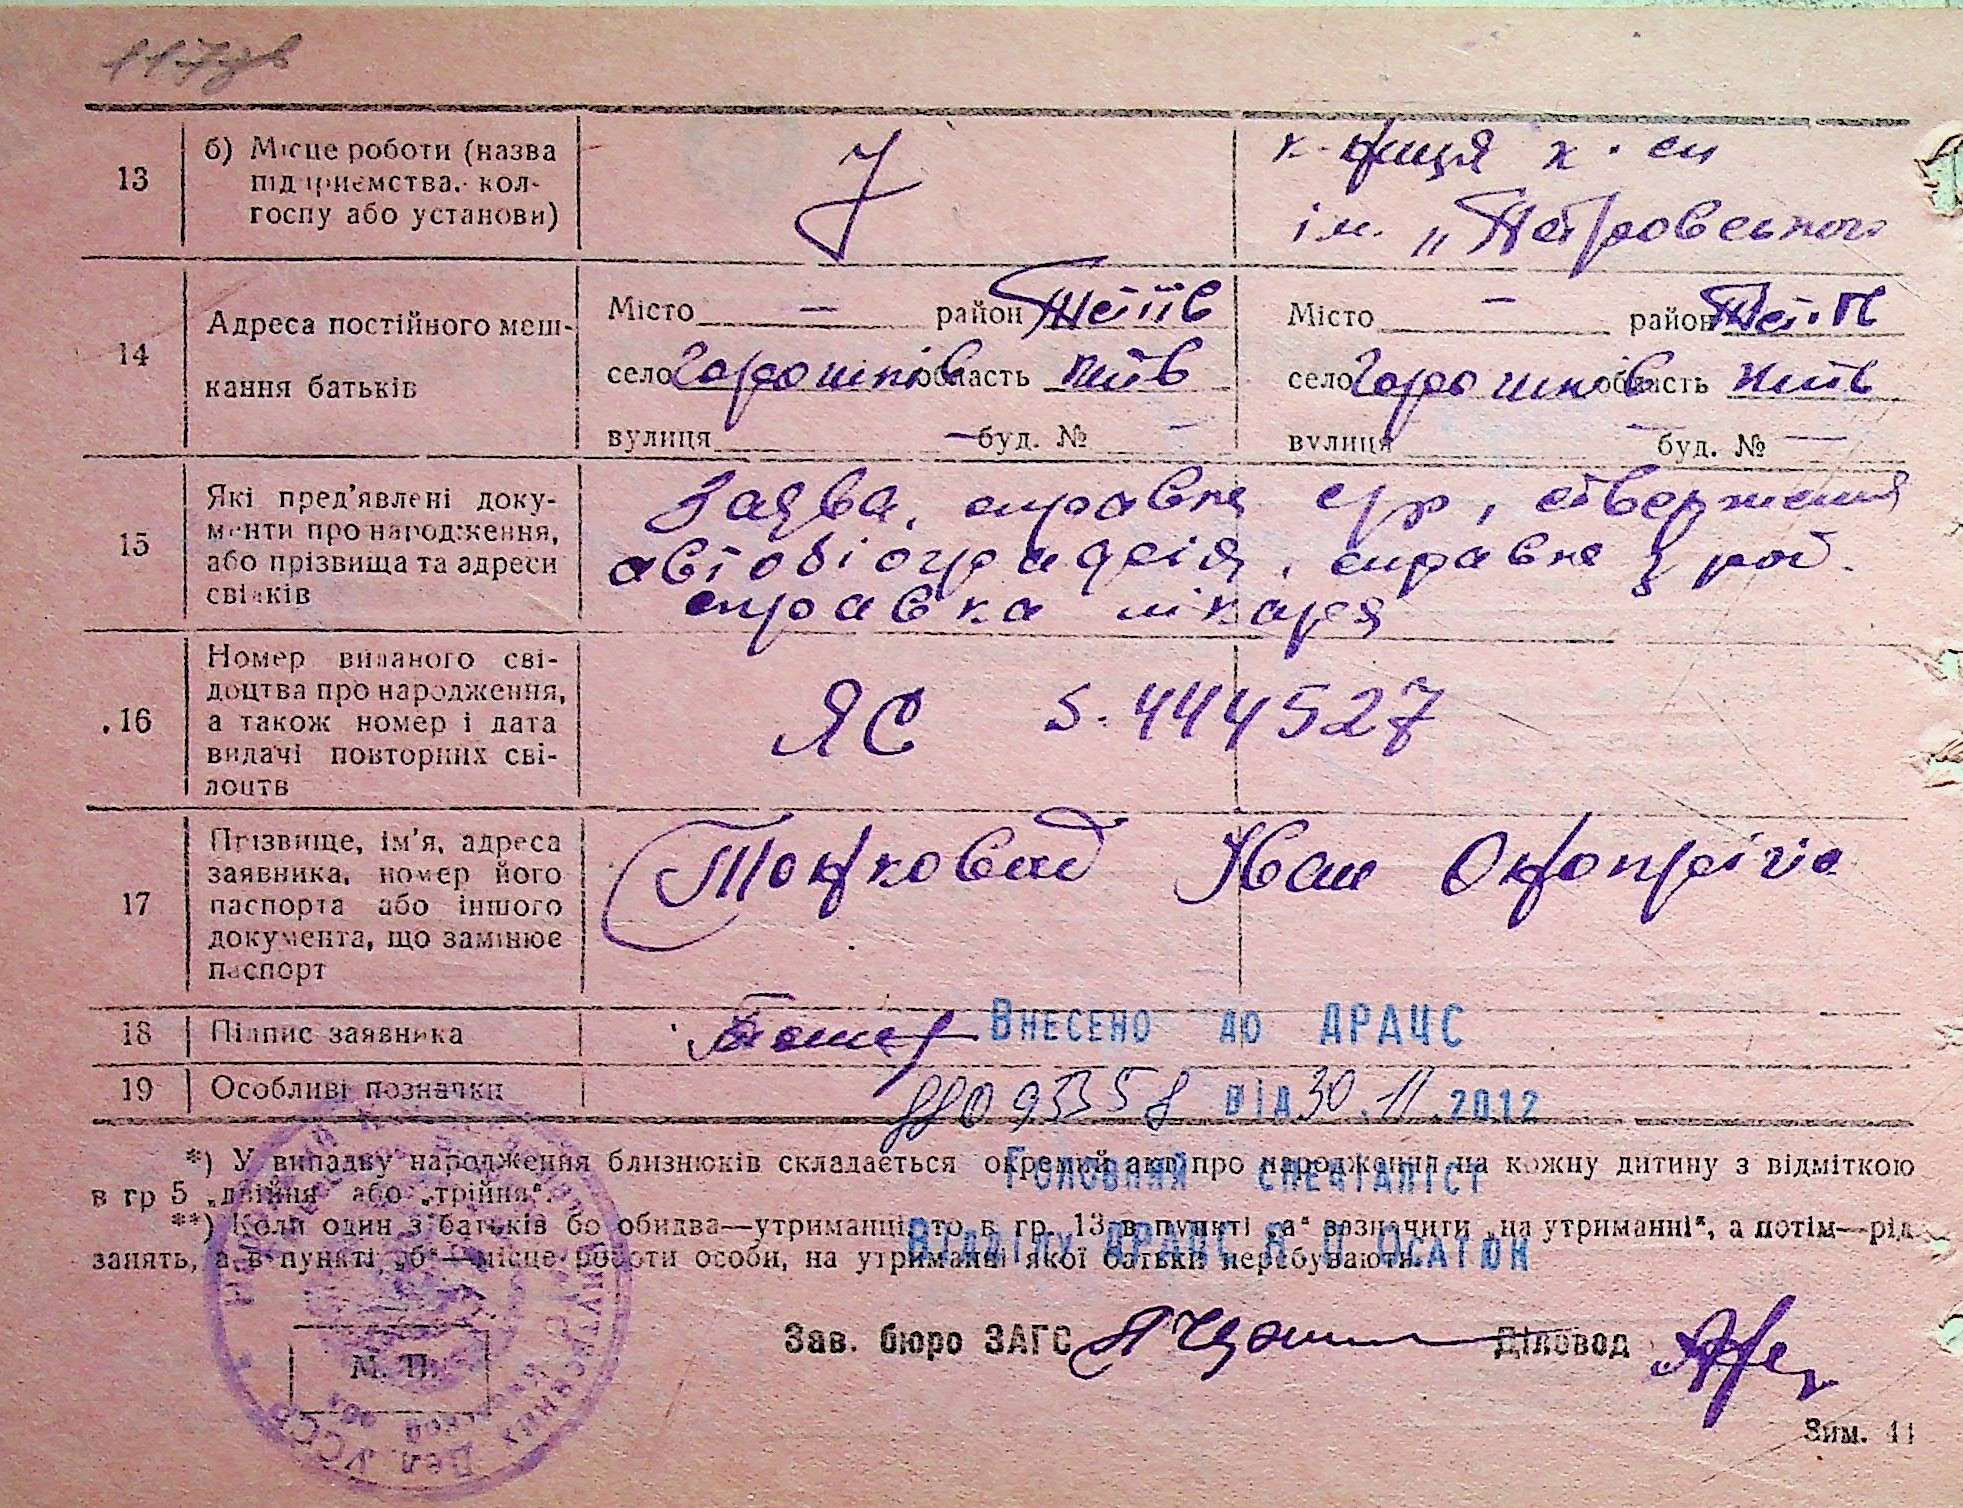 13
б) Місце роботи (назва
підприємства, кол-
госпу або установи)
к-ниця к. сп
ім. „Петровського
14
Адреса постійного меш-
кання батьків
Місто — район Тетіїв
село Горошків область Київ
вулиця — буд. № —
Місто — район Тет.
село Горошків область Київ
вулиця — буд. № —
15
Які пред’явлені доку-
менти про народження,
або прізвища та адреси
свідків
Заява, справка с/р, ствержения
автобіографія, справка з рай.
справка лікаря
16
Номер виданого сві-
доцтва про народження,
а також номер і дата
видачі повторних сві-
доцтв
ЯС 5.444527
17
Прізвище, ім’я, адреса
заявника, номер його
паспорта або іншого
документа, що замінює
паспорт
Іван
18
Підпис заявника
Внесено до ДРАЦС
19
Особливі позначки
від 30.11.2012
*) У випадку народження близнюків складається окремий акт про народження на кожну дитину з відміткою
в гр 5 „двійня або „трійня“.
Головний спеціаліст
**) Коли один з батьків бо обидва—утриманці, то в гр. 13 в пункті „а“ зазначити „на утриманні“, а потім—рід
занять, а в пункті „б“—місце роботи особи, на утриманні якої батьки перебувають.
Відділу ДРАЦС
Зав. бюро ЗАГС
Діловод
М. П.
Зим. 11